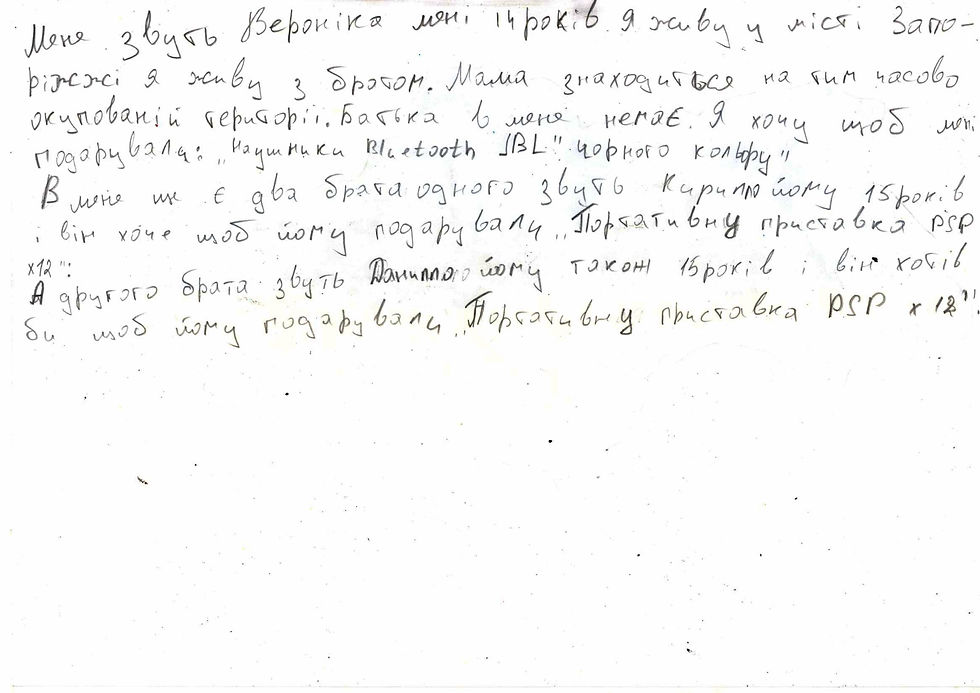 Мене звуть Вероніка мені 14 років. Я живу у місті Запо-
ріжжі я живу з братом. Мама знаходиться на тим часово
окупованій території. Батька в мене немає. Я хочу щоб мені
подарували: „Наушники Bluetooth JBL" чорного кольру"
В мене ще є два брата одного звуть Кирилло йому 15 років
і він хоче щоб йому подарували „Портативну приставка PSP
x12":
А другого брата звуть Данилло йому також 15 років і він хотів
би щоб йому подарували „Портативну приставка PSP x 12".